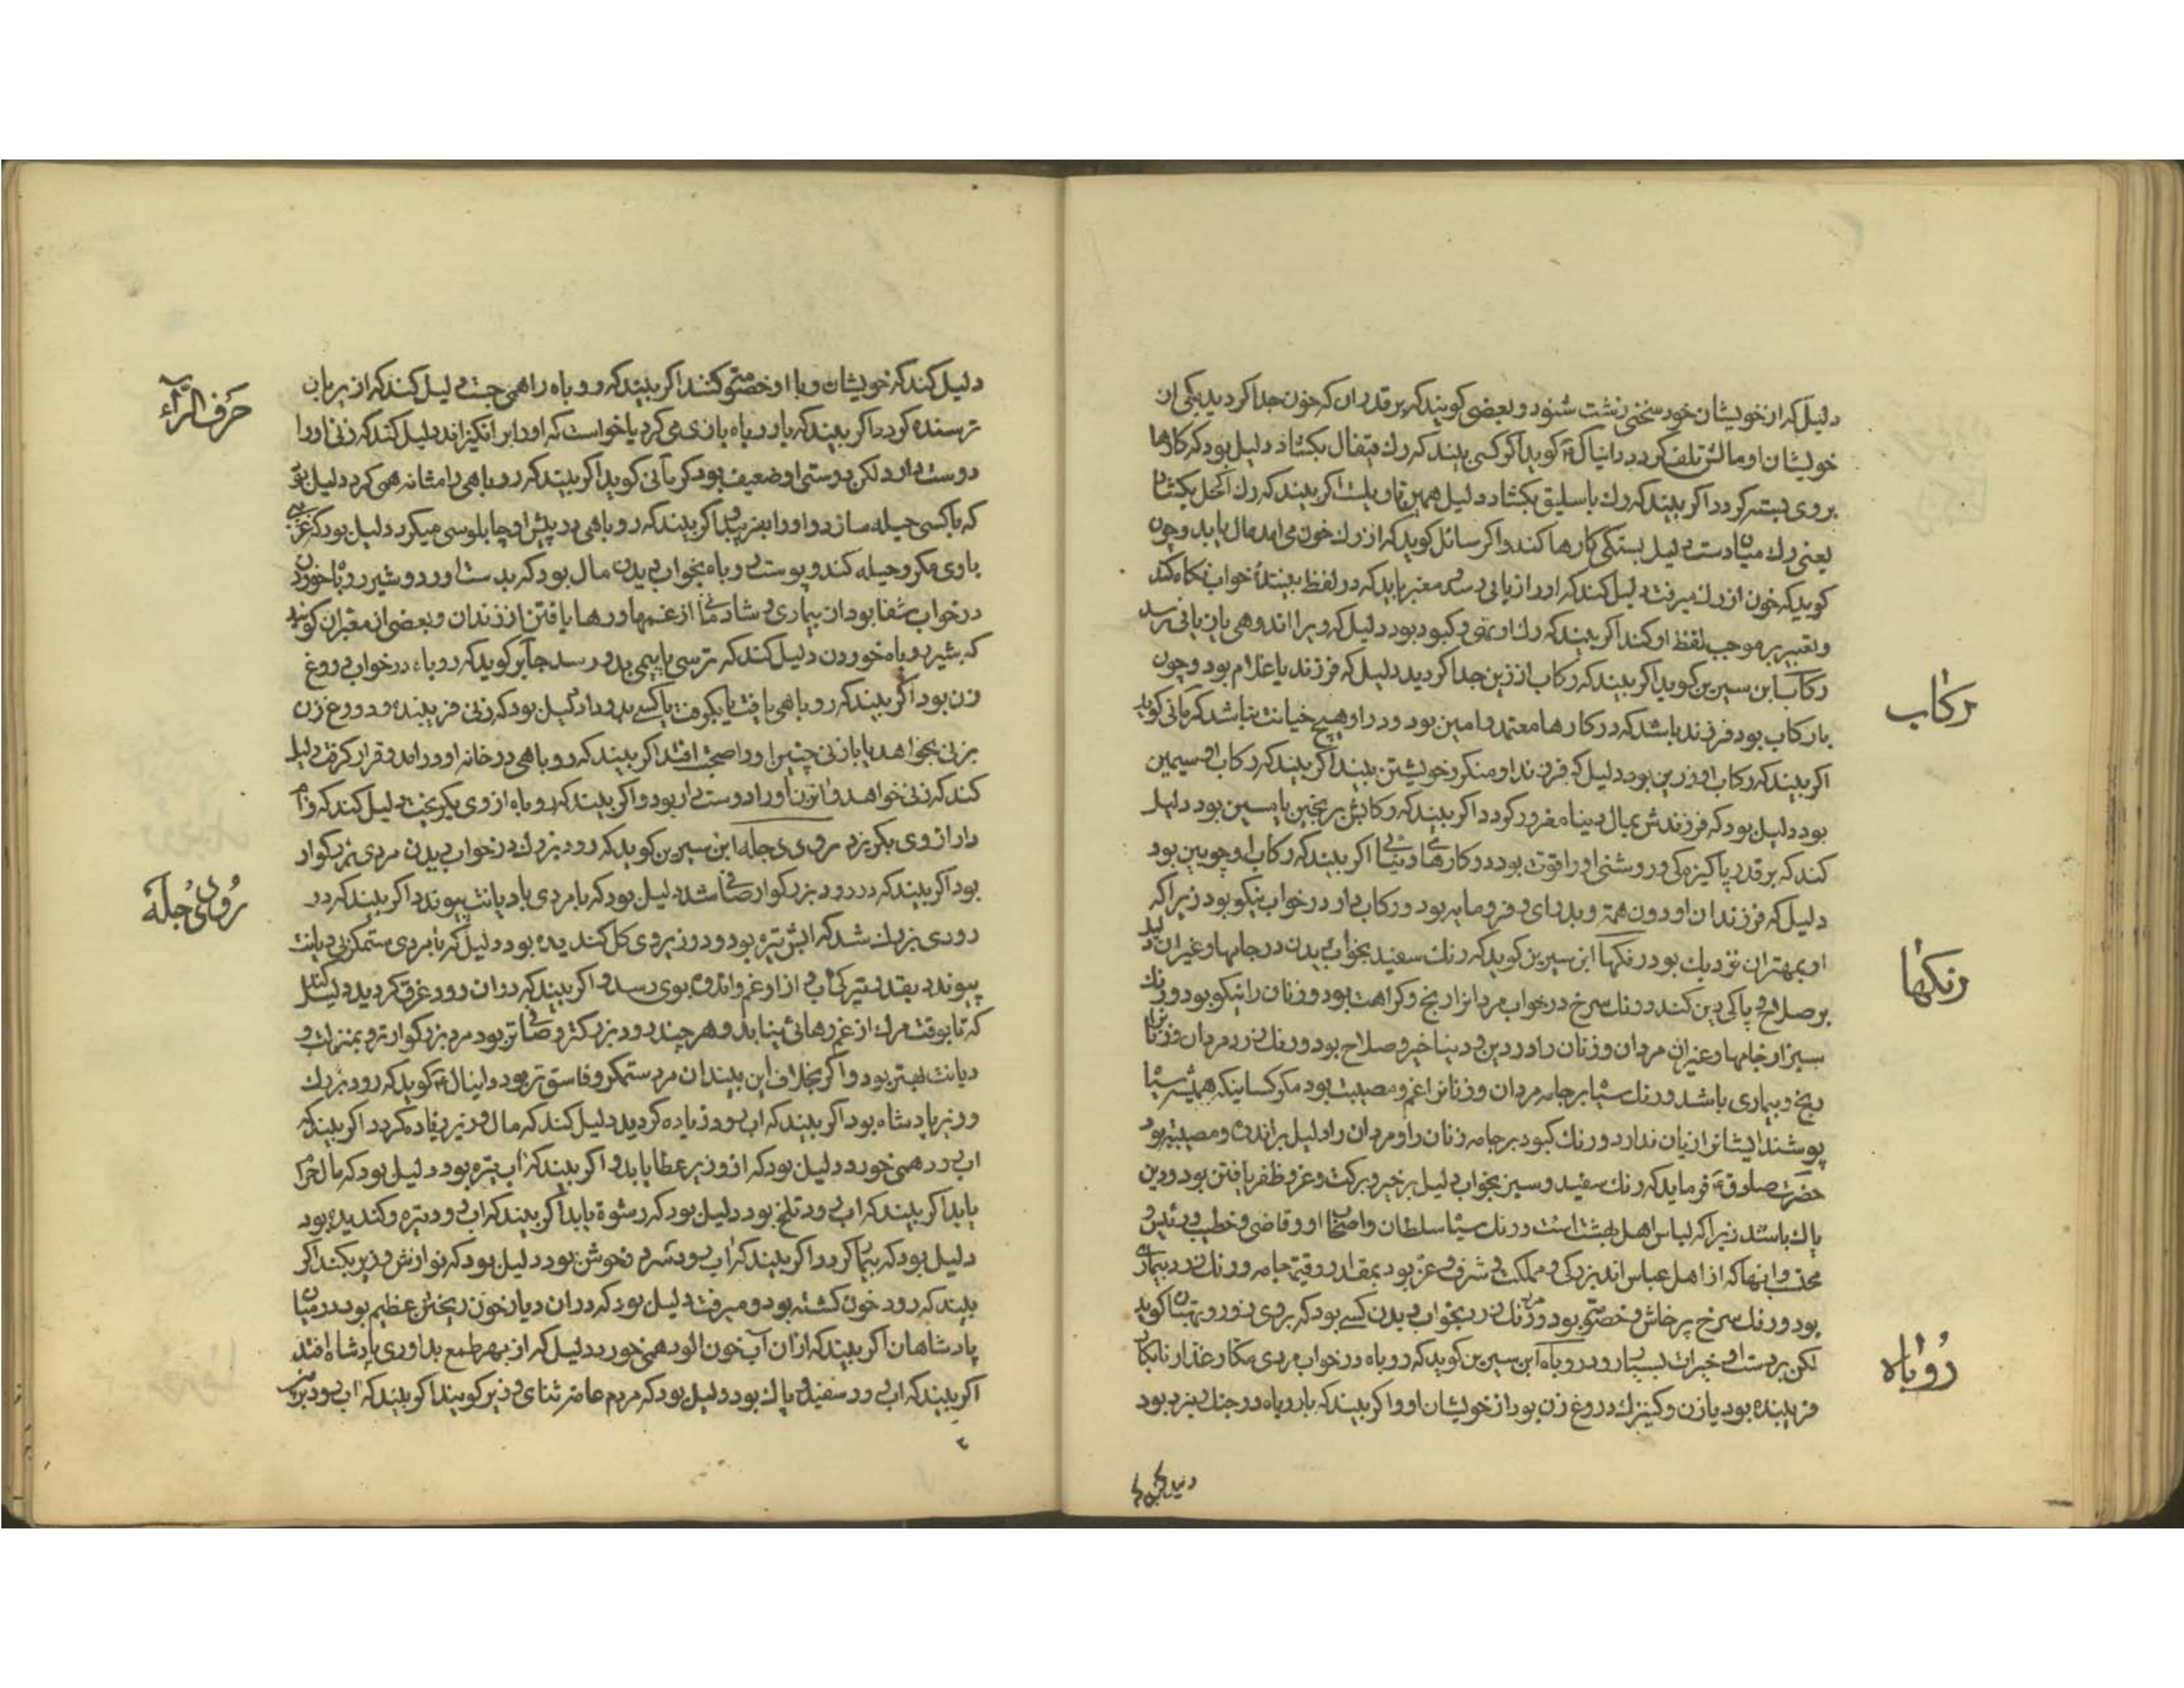 دلیل که از خویشان خود سخنی زشت شنود و بعضی کویند که بر قدر ان که خون جدا کردید یکی از
خویشان او مالش تلف کردد دانیال کوید اکر کسی بیند که رك قیفال بکشاد دلیل بود که کارها
بروی بسته کردد اکر بیند که رك باسلیق بکشاد دلیل همین تاویلست اکر بیند که رك اکحل بکشاد
یعنی رك میان دست دلیل بستکی کارها کند و اکر سائل کوید که از رك خون می امد مال یابد و چون
کوید که خون از رك میرفت دلیل کند که او را زیانی رسد معبر باید که در لفظ بینندهٔ خواب نکاه کند
و تعبیر بر موجب لفظ او کند اکر بیند که رك او تهی و کبود بود دلیل که ویرا اندوهی یا زیانی رسد
رکاب
رکاب ابن سیرین کوید اکر بیند که رکاب از زین جدا کردید دلیل که فرزند یا غلام بود و چون
با رکاب بود فرزند باشد که در کارها معتمد و امین بود و در او هیچ خیانت نباشد کرمانی کوید
اکر بیند که رکاب او زرین بود دلیل که فرزند او متکبر و خویشتن بین بیند اکر بیند که رکاب او سیمین
بود دلیل بود که فرزندش بمال دنیا مغرور کردد اکر بیند که رکابش برنجین یا مسین بود دلیل
کند که بر قدر پاکیزه کی و روشنی او را قوت بود در کارهای دنیائی اکر بیند که رکاب او چوبین بود
دلیل که فرزندان او دون همت و بد رای و فرومایه بود و رکاب دار در خواب نیکو بود زیرا که
رنکها
او بمهتران نزدیك بود رنکها ابن سیرین کوید که رنك سفید بخواب دیدن در جامها و غیر ان دلیل
بر صلاح و پاکی دین کند و رنك سرخ در خواب مردانرا رنج و کراهت بود و زنان را نیکو بود و رنك
سبز از جامها و غیر ان مردان و زنان را در دین و دنیا خیر و صلاح بود و رنك زرد مردان و زنانرا
رنج و بیماری باشد و رنك سیاه بر جامه مردان و زنانرا غم و مصیبت بود مکر کسانیکه همیشه سیاه
پوشند ایشانرا زیان ندارد و رنك کبود بر جامه زنان را و مردان را دلیل بر اندوه و مصیبت بود
حضرت صادق فرماید که رنك سفید و سبز بخواب دلیل بر خیر و برکت و عز و ظفر یافتن بود و دین
پاك باشد زیرا که لباس اهل بهشت است و رنك سیاه سلطان و اصحاب او و قاضی و خطیب و رئیس و
محتسب و انها که از اهل عباس اند بزرکی و مملکت و شرف و عز بود بمقدار و قیمت جامه و رنك زرد بیماری
بود و رنك سرخ پرخاش و خصومت بود و رنك زر بخواب دیدن کسی بود که بروی زور و بهتان کوید
رُوباه
لکن بر دست او خیرات بسیار رود روباه ابن سیرین کوید که روباه در خواب مردی مکار غدار نابکار
فریبنده بود یا زن و کنیزك دروغ زن بود از خویشان او و اکر بیند که با روباه در جنك نبرد بود
حَرف الرّآء
دلیل کند که خویشان وی با او خصومت کنند اکر بیند که روباه را همی جست دلیل کند که از پریان
ترسنده کردد اکر بیند که با روباه بازی می کرد یا خواست که او را بر انکیزاند دلیل کند که زنی او را
دوست دارد لکن دوستی او ضعیف بود کرمانی کوید اکر بیند که روباهی را مشانه همی کرد دلیل بود
که با کسی حیله سازد و او را بفریبد اکر بیند که روباهی در پیش او چابلوسی میکرد دلیل بود که غریبی
با وی مکر و حیله کند و پوست روباه بخواب دیدن مال بود که بدست اورد و شیر روباه خوردن
در خواب شفا بود از بیماری و شادمانی از غمها و رها یافتن از زندان و بعضی از معبران کویند
که شیر روباه خوردن دلیل کند که ترسی یا بیمی بدو رسد جابر کوید که روباه در خواب دروغ
زن بود اکر بیند که روباهی یافت یا بکرفت یا کسی بدو داد دلیل بود که زنی فریبنده و دروغ زن
بزنی بخواهد یا با زنی چنین او را صحبت افتد اکر بیند که روباهی در خانه او در امد و قرار کرفت دلیل
کند که زنی خواهد و ان زن او را دوست دار بود و اکر بیند که روباه از وی بکریخت دلیل کند که وام
رُودی دِجله
دار از وی بکریزد رودی دجله ابن سیرین کوید که رود بزرك در خواب دیدن مردی بزرکوار
بود اکر بیند که در رود بزرکوار صافی شد دلیل بود که با مردی با دیانت پیوندد اکر بیند که در
رودی بزرك شد که ابش تیره بود و در زیر وی کل کندیده بود دلیل که با مردی ستمکر بی دیانت
پیوندد بقدر تیرکی اب از او غم و اندوه بوی رسد و اکر بیند که در ان رود غرق کردید دلیل کند
که تا بوقت مرك از غم رهائی نیابد و هر چند رود بزرکتر و صافی تر بود مرد بزرکوارتر و بمنزلت و
دیانت بهتر بود و اکر بخلاف این بیند ان مرد ستمکر و فاسق تر بود دانیال کوید که رود بزرك
وزیر پادشاه بود اکر بیند که اب رود زیاده کردید دلیل کند که مال وزیر زیاده کردد اکر بیند که
اب رود همی خورد دلیل بود که از وزیر عطا یابد و اکر بیند که اب تیره بود دلیل بود که مال حرام
یابد اکر بیند که اب رود تلخ بود دلیل بود که رشوة یابد اکر بیند که اب رود تیره و کندیده بود
دلیل بود که بیمار کردد اکر بیند که اب رود شیرین و خوش بود دلیل بود که نوازش وزیر بکند اکر
بیند که رود خون کشته بود و میرفت دلیل بود که در ان دیار خون ریختن عظیم بود در میان
پادشاهان اکر بیند که از ان آب خون الود همی خورد دلیل که از بهر طمع بداوری پادشاه افتد
اکر بیند که اب رود سفید و پاك بود دلیل بود که مردم عامه ثنای وزیر کویند اکر بیند که اب رود